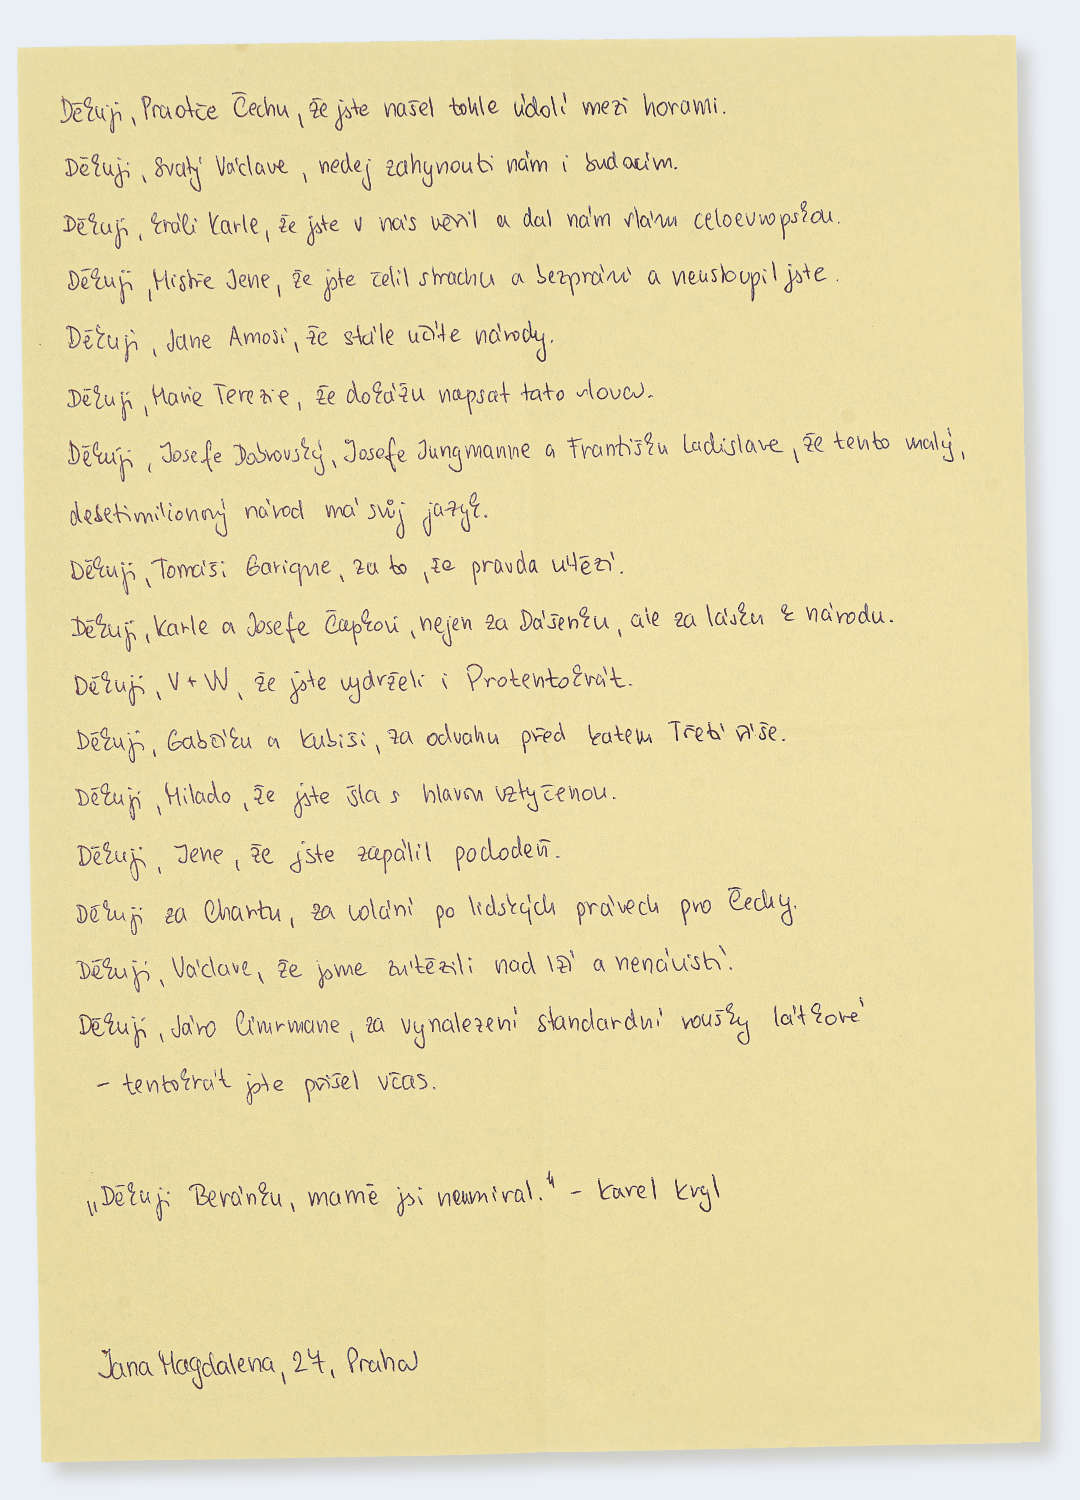 Děkuji, Praotče Čechu, že jste našel tohle údolí mezi horami.
Děkuji, Svatý Václave, nedej zahynouti nám i budoucím.
Děkuji, králi Karle, že jste v nás věřil a dal nám vládu celoevropskou.
Děkuji, Mistře Jene, že jste čelil strachu a bezpráví a neustoupil jste.
Děkuji, Jane Amosi, že stále učíte národy.
Děkuji, Marie Terezie, že dokážu napsat tato slova.
Děkuji, Josefe Dobrovský, Josefe Jungmanne a Františku Ladislave, že tento malý,
desetimilionový národ má svůj jazyk.
Děkuji, Tomáši Garique, za to, že pravda vítězí.
Děkuji, Karle a Josefe Čapkovi, nejen za Dášenku, ale za lásku k národu.
Děkuji, V+W, že jste vydrželi i Protentokrát.
Děkuji, Gabčíku a Kubiši, za odvahu před katem Třetí říše.
Děkuji, Milado, že jste šla s hlavou vztyčenou.
Děkuji, Jene, že jste zapálil pochodeň.
Děkuji za Chartu, za volání po lidských právech pro Čechy.
Děkuji, Václave, že jsme zvítězili nad lží a nenávistí.
Děkuji, Járo Cimrmane, za vynalezení standardní roušky látkové
- tentokrát jste přišel včas.
„Děkuji Beránku, marně jsi neumíral." - Karel Kryl
Jana Magdalena, 27, Praha